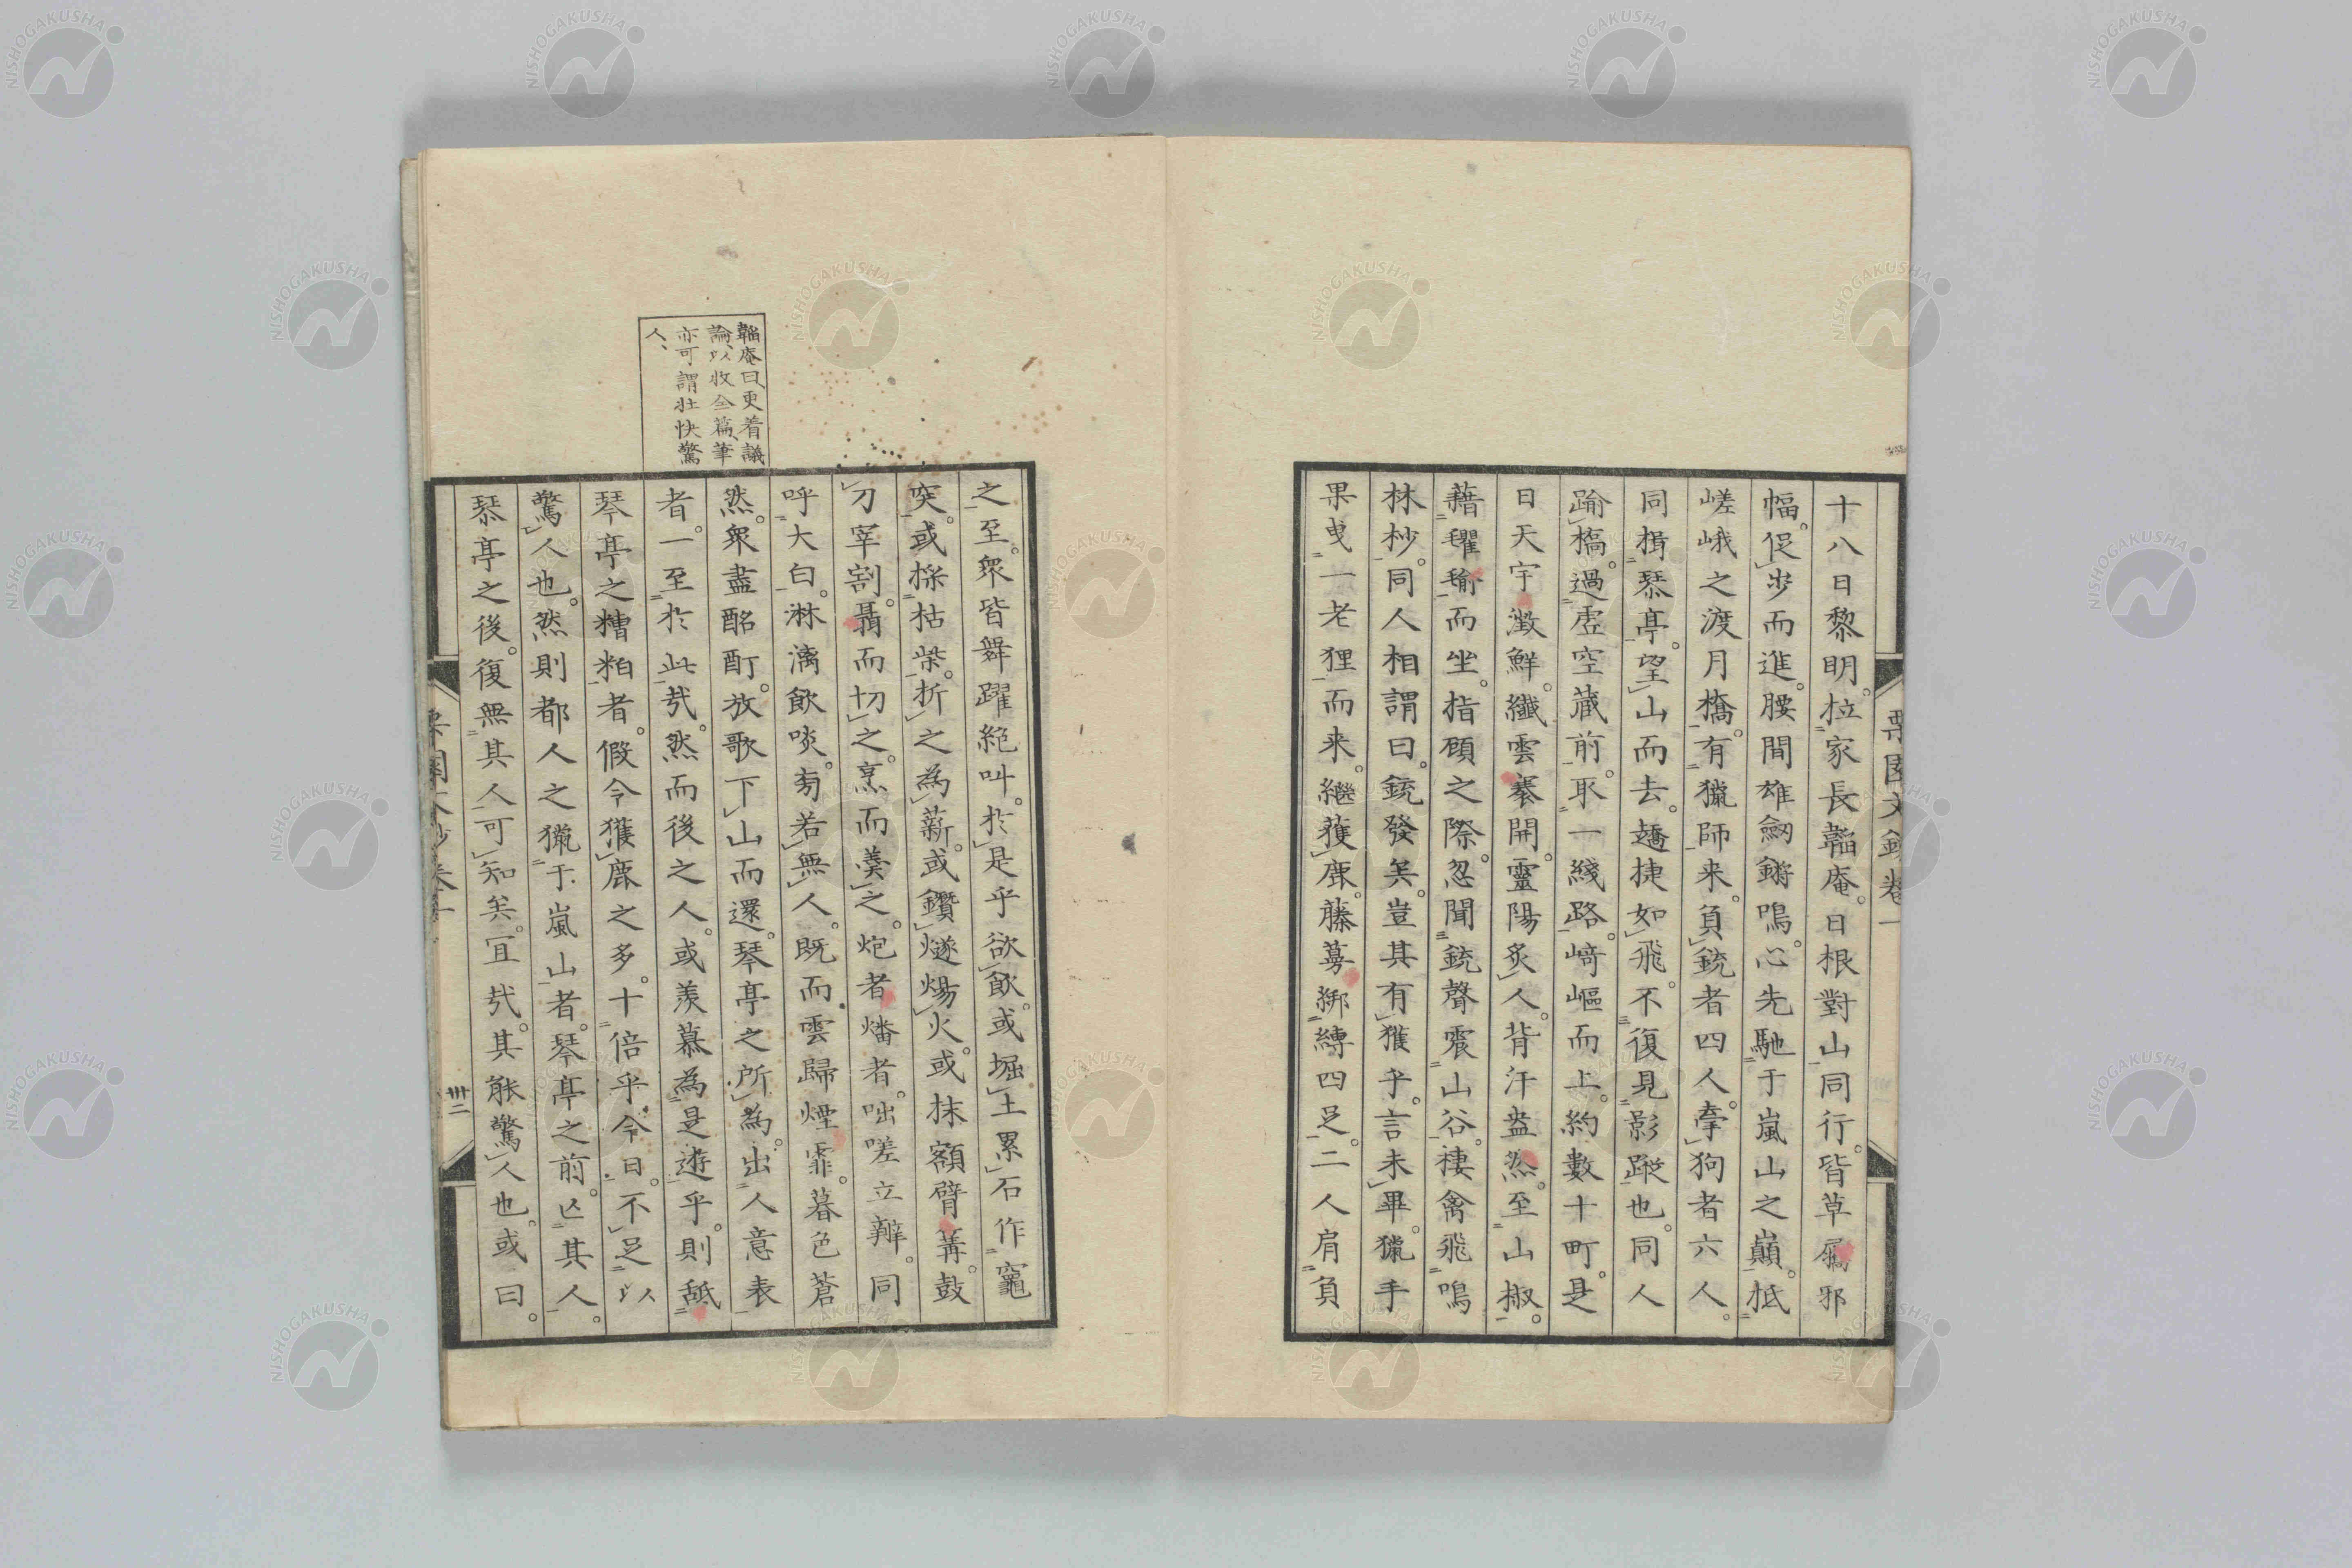 十八日黎明。拉家長韜庵。日根對山同行。皆草屩邪
幅。促步而進。腰間雄劔鏘鳴。心先馳于嵐山之巔。抵
嵯峨之渡月橋。有獵師来。負銃者四人。牽狗者六人。
同揖琴亭。望山而去。趫捷如飛。不復見影蹤也。同人
踰橋。過虚空蔵前。取一綫路。﨑嶇而上。約數十町。是
日天宇澂鮮。纖雲褰開。靈陽炙人。背汗盎然。至山椒。
藉氍毹而坐。指顧之際。忽聞銃聲震山谷。棲禽飛鳴
林杪。同人相謂曰。銃發矣。豈其有獲乎。言未畢。獵手
果曳一老狸而来。繼獲鹿。藤蔓綁縛四足。二人肩負
栗園文鈔卷一
韜庵曰、更着議
論、以收全篇、筆
亦可謂壮快驚
人、
之至。衆皆舞躍絶叫。於是乎欲飲。或堀土累石作竈
突。或採枯柴。折之為薪。或鑽燧煬火。或抹額臂韝。鼓
刀宰割。聶而切之。烹而羹之。炮者燔者。咄嗟立辧。同
呼大白。淋漓飲啖。旁若無人。既而雲歸煙霏。暮色蒼
然。衆盡酩酊。放歌下山而還。琴亭之所為。出人意表
者。一至於此哉。然而後之人。或羨慕為是遊乎。則舐
琴亭之糟粕者。假令獲鹿之多。十倍乎今日。不足以
驚人也。然則都人之獵于嵐山者。琴亭之前。亾其人。
琴亭之後。復無其人可知矣。宜哉。其能驚人也。或曰。
栗園文鈔卷一
卅二